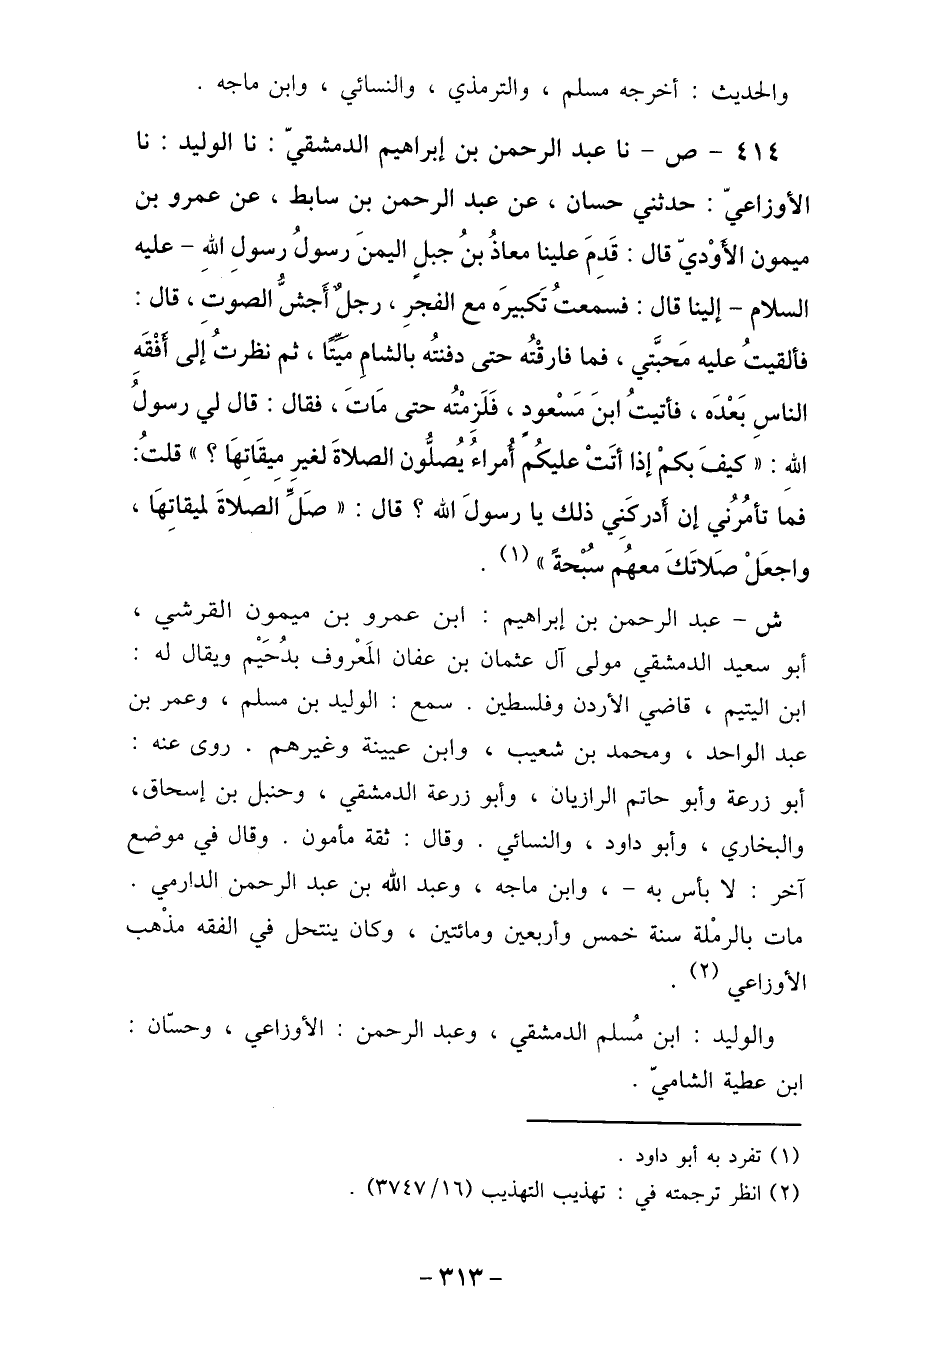 والحديث : أخرجه مسلم ، والترمذي ، والنسائي ، وابن ماجه .
٤١٤ - ص - نا عبد الرحمن بن إبراهيم الدمشقيّ : نا الوليد : نا
الأوزاعيّ : حدثني حسان ، عن عبد الرحمن بن سابط ، عن عمرو بن
ميمون الأَوْديّ قال : قَدِمَ علينا معاذُ بنُ جبلٍ اليمنَ رسولُ رسولِ اللهِ - عليه
السلام - إلينا قال : فسمعتُ تَكبيرَه مع الفجرِ ، رجلٌ أَجشُّ الصوتِ ، قال :
فألقيتُ عليه مَحبَّتي ، فما فارقْتُه حتى دفنتُه بالشامِ مَيِّتًا ، ثم نظرتُ إلى أَفْقَه
الناسِ بَعْدَه ، فأتيتُ ابنَ مَسْعودٍ ، فَلَزِمْتُه حتى مَاتَ ، فقال : قال لي رسولُ
اللهِ : « كيفَ بكمْ إذا أتَتْ عليكمْ أُمراءُ يُصلُّون الصلاةَ لغيرِ مِيقَاتِهَا ؟ » قلتُ:
فما تأمُرُني إن أَدركَنِي ذلك يا رسولَ الله ؟ قال : « صَلِّ الصلاةَ لميقاتِهَا ،
واجعَلْ صَلاتَكَ معهُم سُبْحةً » (١) .
ش - عبد الرحمن بن إبراهيم : ابن عمرو بن ميمون القرشي ،
أبو سعيد الدمشقي مولى آل عثمان بن عفان المَعْروف بدُحَيْم ويقال له :
ابن اليتيم ، قاضي الأردن وفلسطين . سمع : الوليد بن مسلم ، وعمر بن
عبد الواحد ، ومحمد بن شعيب ، وابن عيينة وغيرهم . روى عنه :
أبو زرعة وأبو حاتم الرازيان ، وأبو زرعة الدمشقي ، وحنبل بن إسحاق،
والبخاري ، وأبو داود ، والنسائي . وقال : ثقة مأمون . وقال في موضع
آخر : لا بأس به - ، وابن ماجه ، وعبد الله بن عبد الرحمن الدارمي .
مات بالرمْلة سنة خمس وأربعين ومائتين ، وكان ينتحل في الفقه مذْهب
الأوزاعي (٢) .
والوليد : ابن مُسلم الدمشقي ، وعبد الرحمن : الأوزاعي ، وحسّان :
ابن عطية الشاميّ .
(١) تفرد به أبو داود .
(٢) انظر ترجمته في : تهذيب التهذيب (٣٧٤٧/١٦) .
- ٣١٣ -